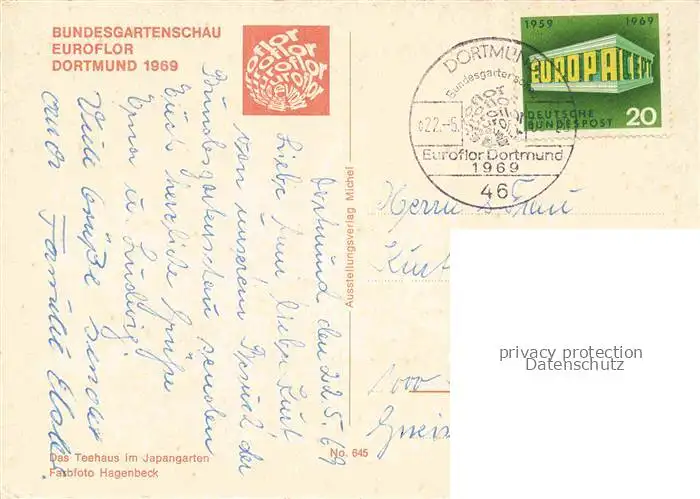 BUNDESGARTENSCHAU
EUROFLOR
DORTMUND 1969
Dortmund den 22.5.69
Liebe Lieber Kurt
von unserem Besuch der
Bundesgartenschau senden
Euch herzliche Grüße
Erna u. Ludwig.
Viele Grüße sendet
auch Familie
Das Teehaus im Japangarten
Farbfoto Hagenbeck
No. 645
Ausstellungsverlag Michel
DORTMUND
Bundesgartenschau
22.-5.
Euroflor Dortmund
1969
46
1959 1969
EUROPA CEPT
DEUTSCHE
BUNDESPOST 20
Herrn u. Frau
Kurt
1000
privacy protection
Datenschutz